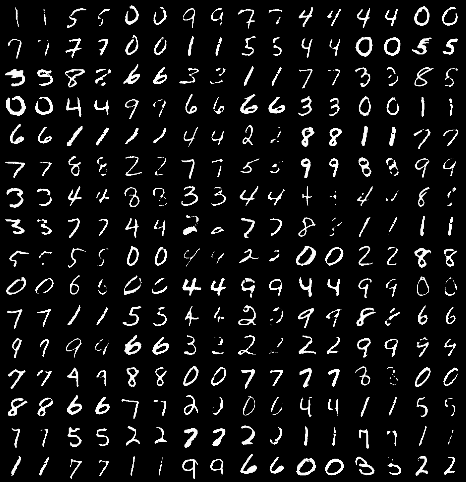 1 1 5 5 0 0 9 9 7 7 4 4 4 4 0 0
7 7 7 7 0 0 1 1 5 5 4 4 0 0 5 5
5 5 8 8 6 6 3 3 1 1 7 7 3 3 8 8
0 0 4 4 9 9 6 6 6 6 3 3 0 0 1 1
6 6 1 1 1 1 4 4 2 2 8 8 1 1 7 7
7 7 8 8 2 2 7 7 5 5 9 9 8 8 9 9
3 3 4 4 8 8 3 3 4 4 4 4 4 8
3 3 7 7 4 4 2 2 7 7 8 8 1 1 1 1
5 5 5 5 0 0 4 4 2 2 0 0 2 2 8 8
0 0 6 6 0 0 4 4 9 9 4 4 9 9 0 0
7 7 1 1 5 5 4 4 2 2 9 9 8 8 6 6
9 9 9 9 6 6 3 3 2 2 2 2 9 9 9 9
7 7 9 9 8 8 0 0 7 7 7 7 8 8 0 0
8 8 6 6 7 7 2 2 0 0 4 4 1 1 5 5
7 7 5 5 2 2 7 7 2 2 1 1 7 7 1 1
1 1 7 7 1 1 9 9 6 6 0 0 3 3 2 2